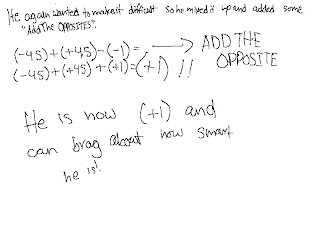 He again wanted to make it difficult so he mixed it up and added some
"Add The OPPOSITES".
(-45)+(+45)-(-1)= → ADD THE
(-45)+(+45)+(+1)=(+1)!! OPPOSITE
He is now (+1) and
can brag about how smart
he is!